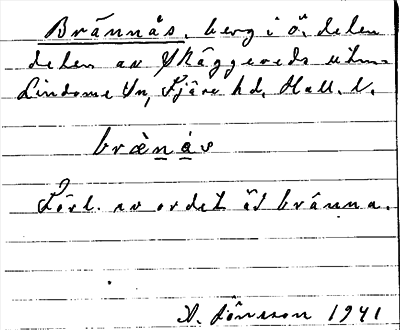 Brännås. berg i ö. delen
delen av Skäggereds utm=
Lindome sn, Fjäre hd. Hall. l.
brænås
Förl. av ordet äs bränna.
A. Jönsson 1941